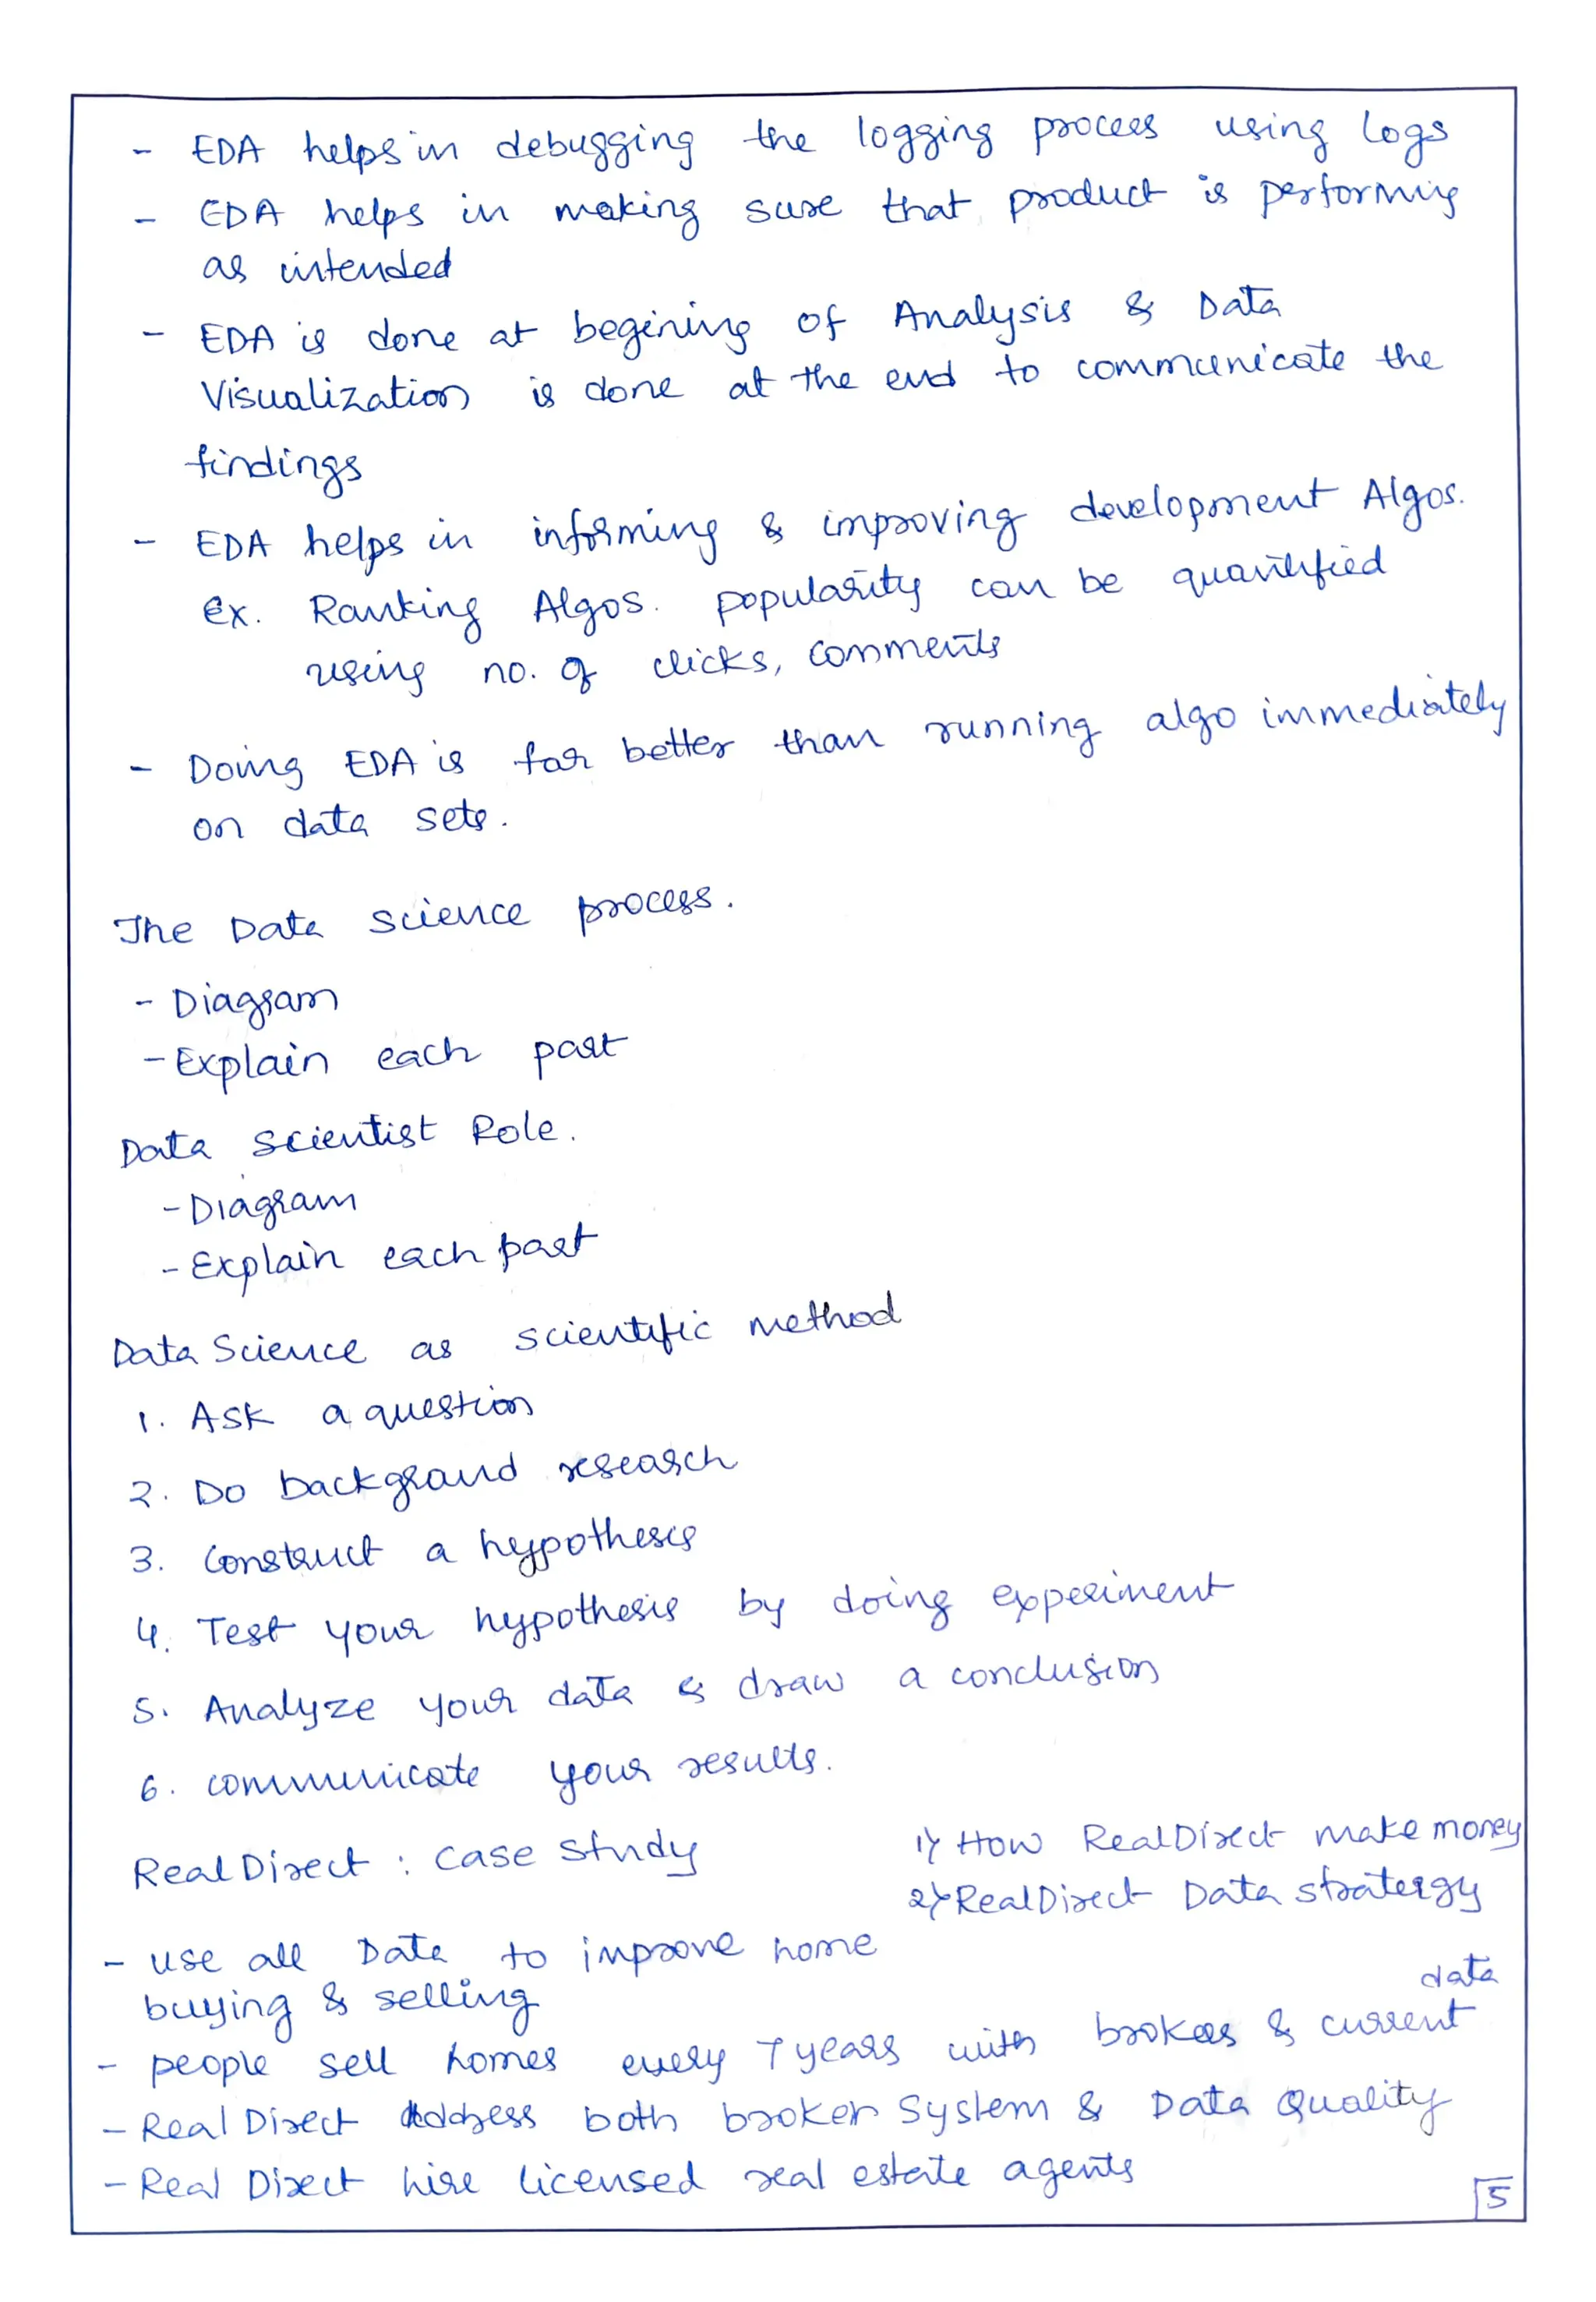 - EDA helps in debugging the logging process using logs
- EDA helps in making sure that product is performing
as intended
- EDA is done at begining of Analysis & Data
Visualization is done at the end to communicate the
findings
- EDA helps in informing & improving development Algos.
Ex. Ranking Algos. popularity can be quantified
using no. of clicks, comments
- Doing EDA is far better than running algo immediately
on data sets.
The Data science process.
- Diagram
- Explain each part
Data scientist Role.
- Diagram
- Explain each part
Data Science as scientific method
1. Ask a question
2. Do background research
3. Construct a hypothesis
4. Test your hypothesis by doing experiment
5. Analyze your data & draw a conclusion
6. communicate your results.
RealDirect : case study
1) How RealDirect make money
2) RealDirect Data stratergy
- use all Data to improve home
buying & selling
- people sell homes every 7 years with brokers & current data
- Real Direct Address both broker System & Data Quality
- Real Direct hire licensed real estate agents
5